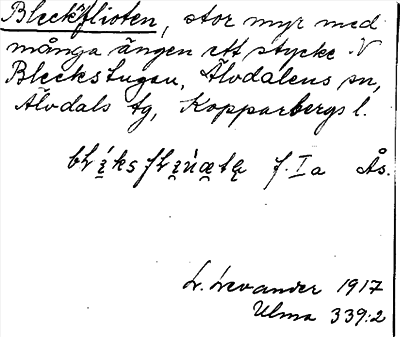 Bleckflioten, stor myr med
många ängen ett stycke N
Bleckstugan, Älvdalens sn,
Älvdals tg, Kopparbergs l.
f. Ia Ås.
L. Levander 1917
Ulma 339:2